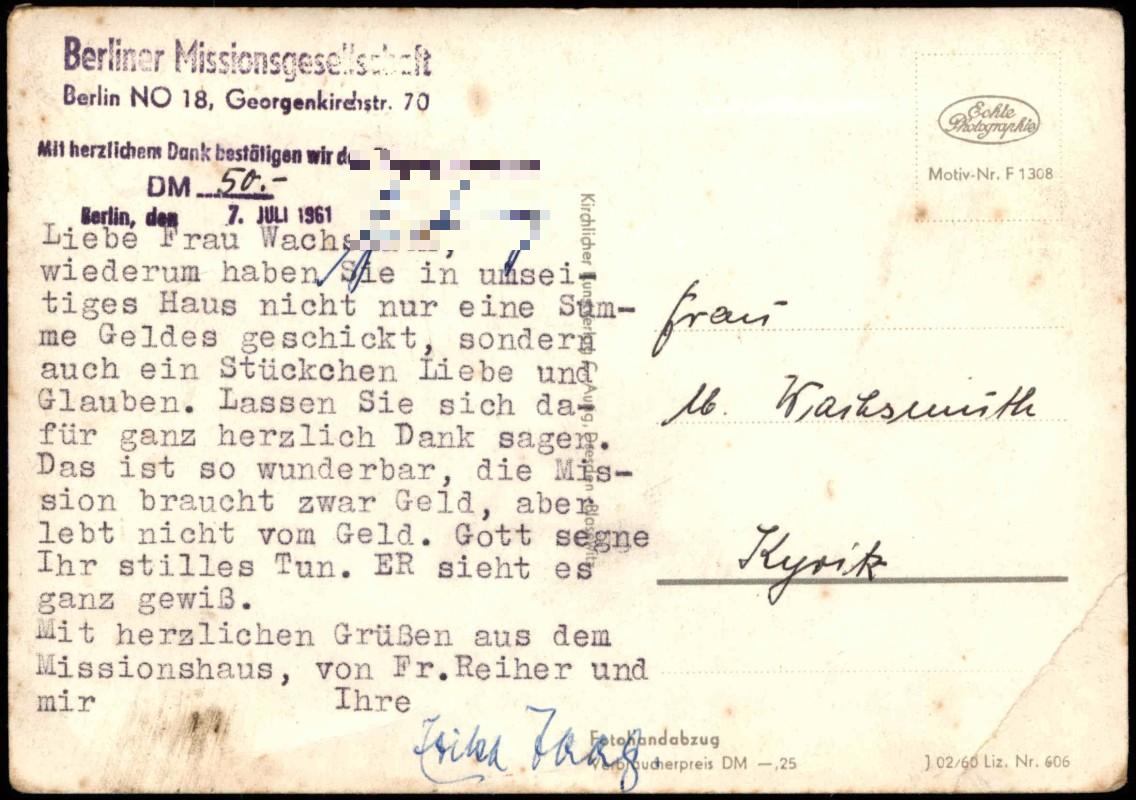 Berliner Missionsgesellschaft
Berlin NO 18, Georgenkirchstr. 70
Mit herzlichem Dank bestätigen wir
DM 50.-
Berlin, den 7. JULI 1961
Liebe Frau
wiederum haben Sie in umsei-
tiges Haus nicht nur eine Sum-
me Geldes geschickt, sondern
auch ein Stückchen Liebe und
Glauben. Lassen Sie sich da-
für ganz herzlich Dank sagen.
Das ist so wunderbar, die Mis-
sion braucht zwar Geld, aber
lebt nicht vom Geld. Gott segne
Ihr stilles Tun. ER sieht es
ganz gewiß.
Mit herzlichen Grüßen aus dem
Missionshaus, von Fr.Reiher und
mir Ihre
Echte
Photographie
Motiv-Nr. F 1308
Frau
M. Wachsmuth
Kyritz
Kirchlicher
Fotohandabzug
Verbraucherpreis DM —,25
J 02/60 Liz. Nr. 606